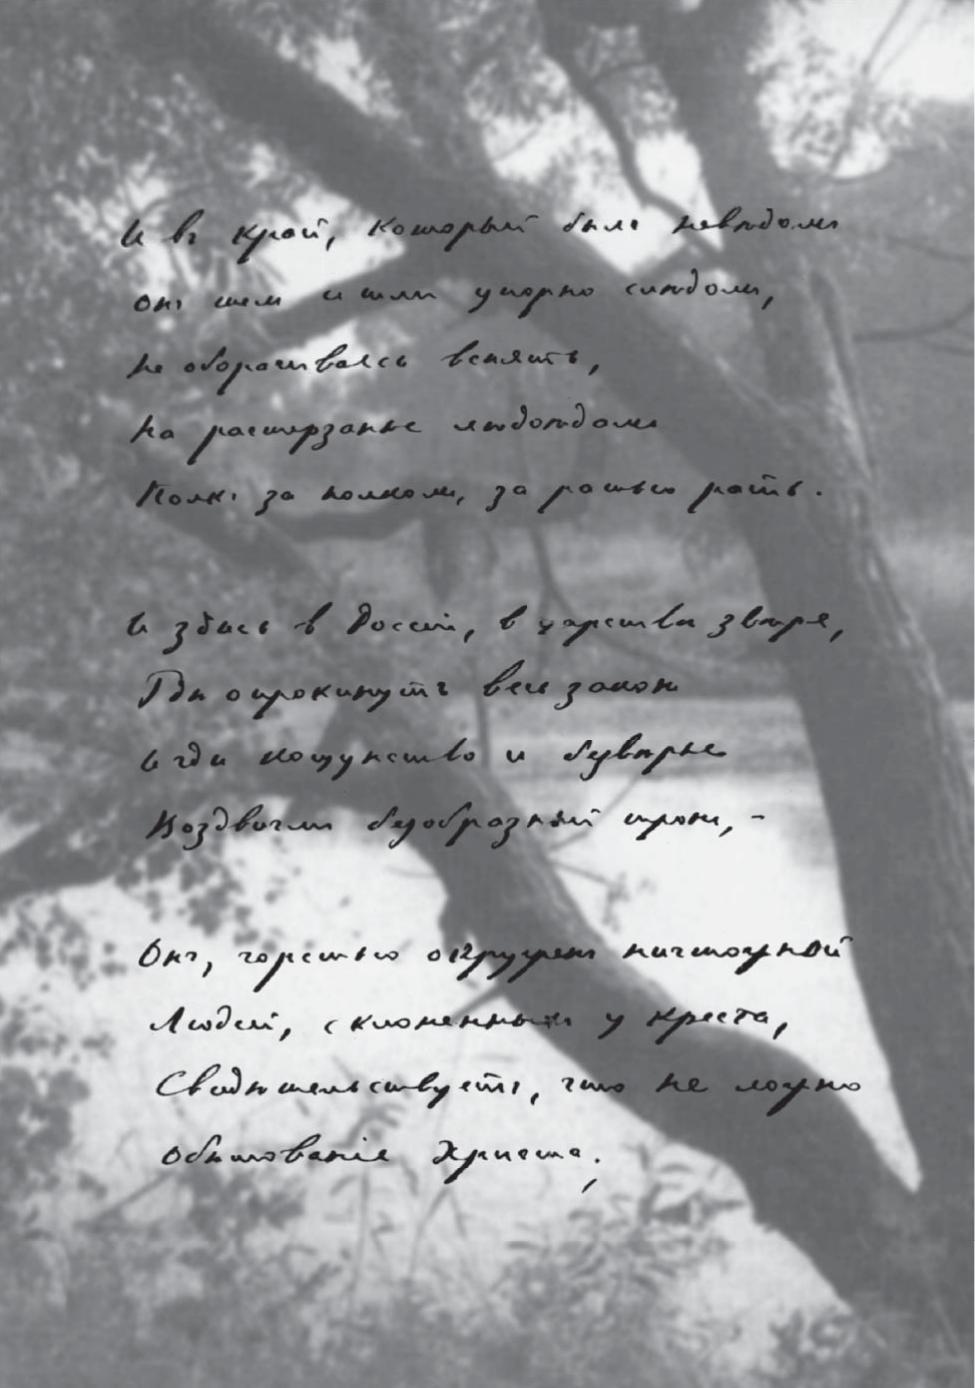 И въ край, который былъ невѣдомъ
онъ шелъ и шли упорно слѣдомъ,
не оборачиваясь вспять,
на растерзанье людоѣдамъ
Полкъ за полкомъ, за ратью рать.
и здѣсь в Россіи, в царствѣ звѣря,
Гдѣ опрокинутъ весь законъ
и гдѣ кощунство и бувѣрье
Воздвигли безобразный тронъ, –
Онъ, горстью окруженъ ничтожной
Людей, склоненныхъ у креста,
Свидѣтельствуетъ, что не ложно
обѣтованіе Христа;